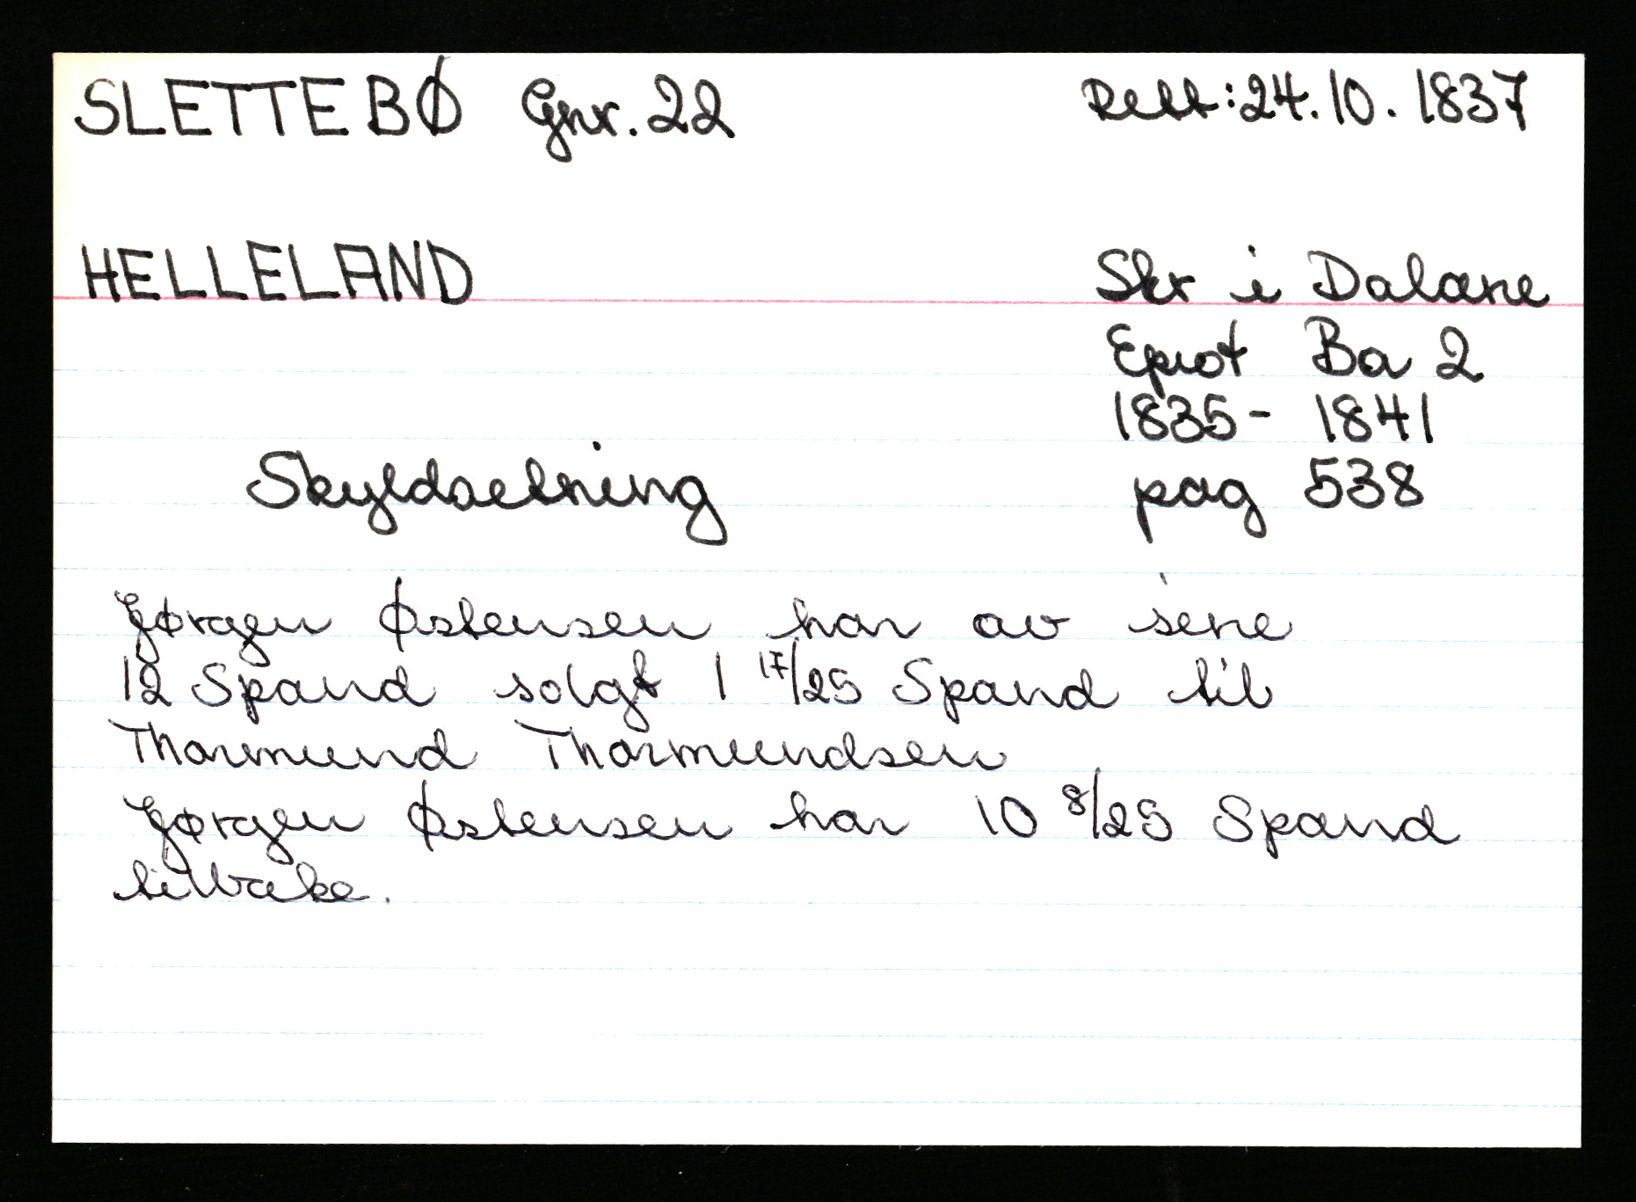 SLETTEBØ Gnr. 22 Rett: 24.10.1837
HELLELAND Skr i Dalane
Eprot Ba 2
1835 - 1841
Skyldsetning pag 538
Jørgen Østensen har av sine
12 Spand solgt 1 17/25 Spand til
Thormund Thormundsen
Jørgen Østensen har 10 8/25 Spand
tilbake.